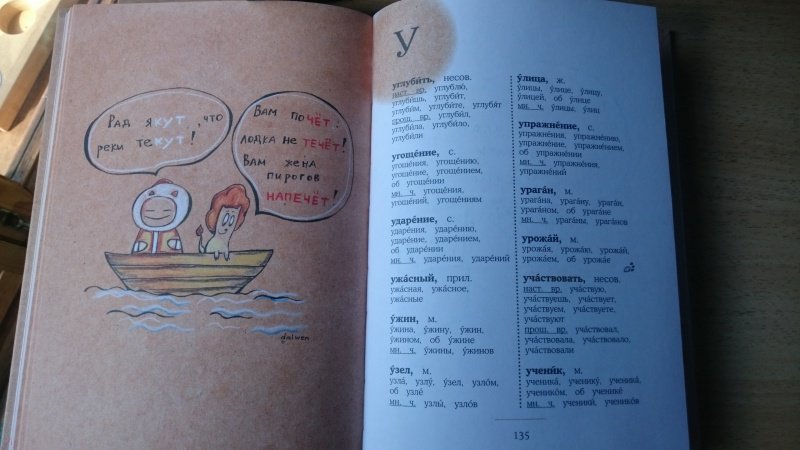 Рад якут, что
реки текут!
Вам почёт:
лодка не течёт!
Вам жена
пирогов
напечёт!
dalwen
У
углуби́ть, несов.
наст. вр. углублю́,
углуби́шь, углуби́т,
углуби́м, углуби́те, углубя́т
прош. вр. углуби́л,
углуби́ла, углуби́ло,
углуби́ли
угоще́ние, с.
угоще́ния, угоще́нию,
угоще́ние, угоще́нием,
об угоще́нии
мн. ч. угоще́ния,
угоще́ний, угоще́ниям
ударе́ние, с.
ударе́ния, ударе́нию,
ударе́ние, ударе́нием,
об ударе́нии
мн. ч. ударе́ния, ударе́ний
ужа́сный, прил.
ужа́сная, ужа́сное,
ужа́сные
у́жин, м.
у́жина, у́жину, у́жин,
у́жином, об у́жине
мн. ч. у́жины, у́жинов
у́зел, м.
узла́, узлу́, у́зел, узло́м,
об узле́
мн. ч. узлы́, узло́в
у́лица, ж.
у́лицы, у́лице, у́лицу,
у́лицей, об у́лице
мн. ч. у́лицы, у́лиц
упражне́ние, с.
упражне́ния, упражне́нию,
упражне́ние, упражне́нием,
об упражне́нии
мн. ч. упражне́ния,
упражне́ний
урага́н, м.
урага́на, урага́ну, урага́н,
урага́ном, об урага́не
мн. ч. урага́ны, урага́нов
урожа́й, м.
урожа́я, урожа́ю, урожа́й,
урожа́ем, об урожа́е
уча́ствовать, несов.
наст. вр. уча́ствую,
уча́ствуешь, уча́ствует,
уча́ствуем, уча́ствуете,
уча́ствуют
прош. вр. уча́ствовал,
уча́ствовала, уча́ствовало,
уча́ствовали
учени́к, м.
ученика́, ученику́, ученика́,
ученико́м, об ученике́
мн. ч. ученики́, ученико́в
135